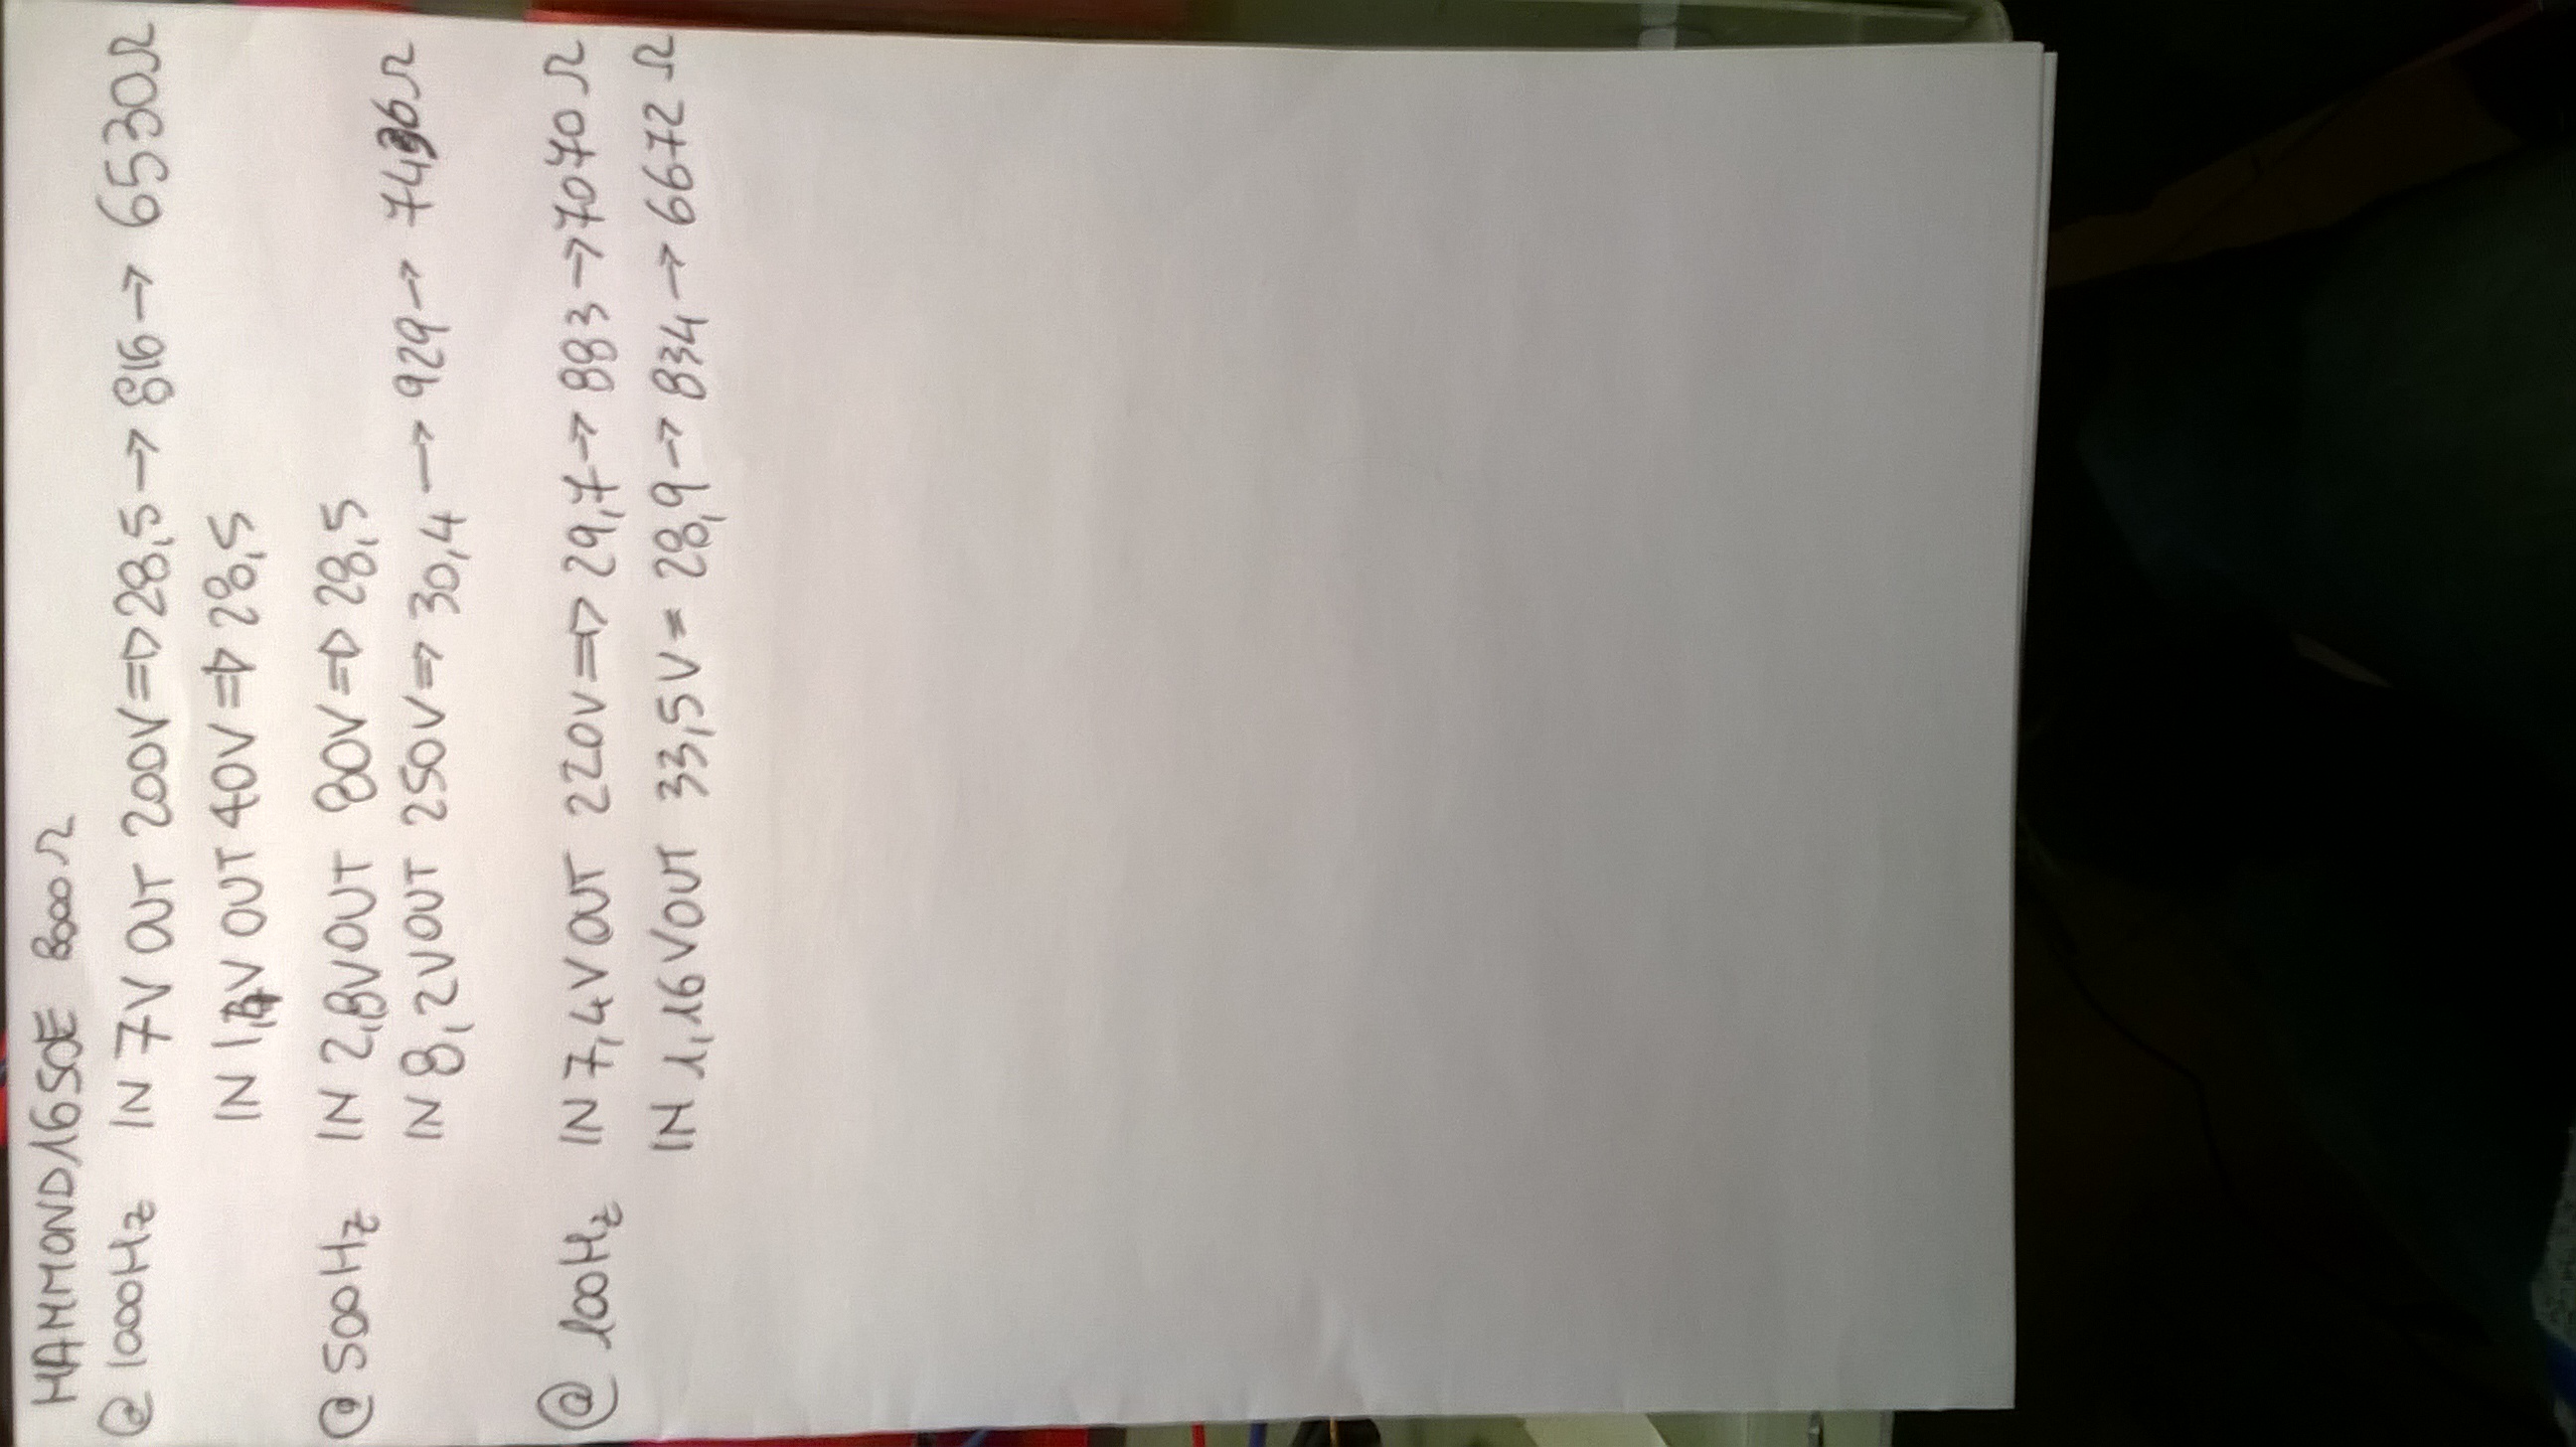 HAMMOND 1650E 8000Ω
@ 1000Hz IN 7V OUT 200V ⇒ 28,5 → 816 → 6530Ω
IN 1,4V OUT 40V ⇒ 28,5
@ 500Hz IN 2,8V OUT 80V ⇒ 28,5
IN 8,2V OUT 250V ⇒ 30,4 → 929 → 7436Ω
@ 100Hz IN 7,4V OUT 220V ⇒ 29,7 → 883 → 7070Ω
IN 1,16V OUT 33,5V = 28,9 → 834 → 6672Ω